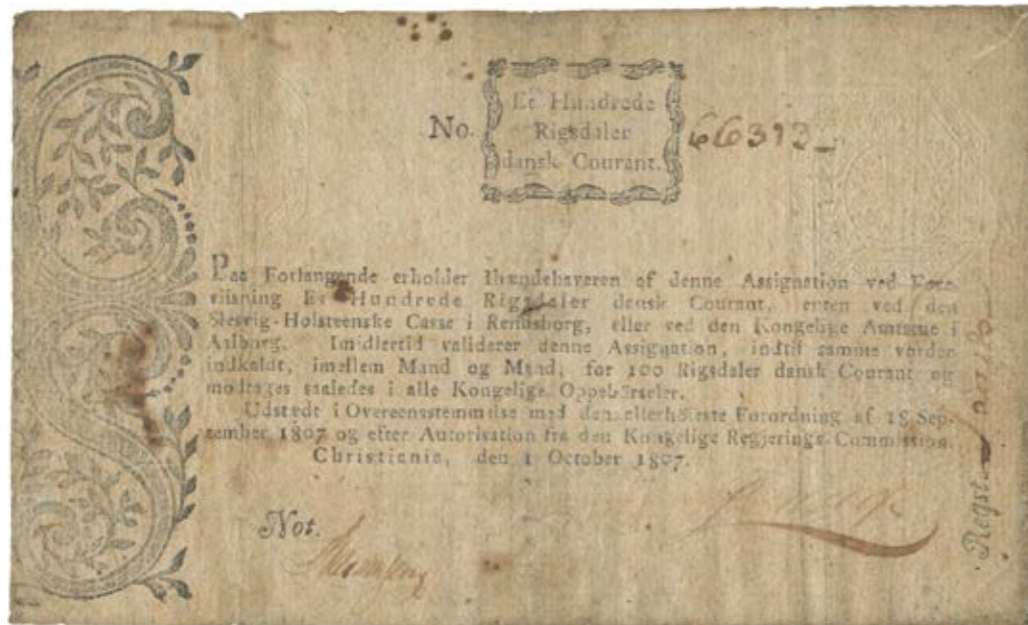 Et Hundrede
No. Rigsdaler 66393
dansk Courant.
Paa Forlangende erholder Ihændehaveren af denne Assignation ved Fore-
viisning Et Hundrede Rigsdaler dansk Courant, enten ved den
Slesvig-Holsteenske Casse i Rendsborg, eller ved den Kongelige Amtstue i
Aalborg. Imidlertid validerer denne Assignation, indtil samme vorder
indkaldt, imellem Mand og Mand, for 100 Rigsdaler dansk Courant og
modtages saaledes i alle Kongelige Oppebörseler.
Udstedt i Overeensstemmelse med den allerhöieste Forordning af 18 Sep-
tember 1807 og efter Autorisation fra den Kongelige Regjerings-Commission.
Christiania, den 1 October 1807.
Not.
Regst.